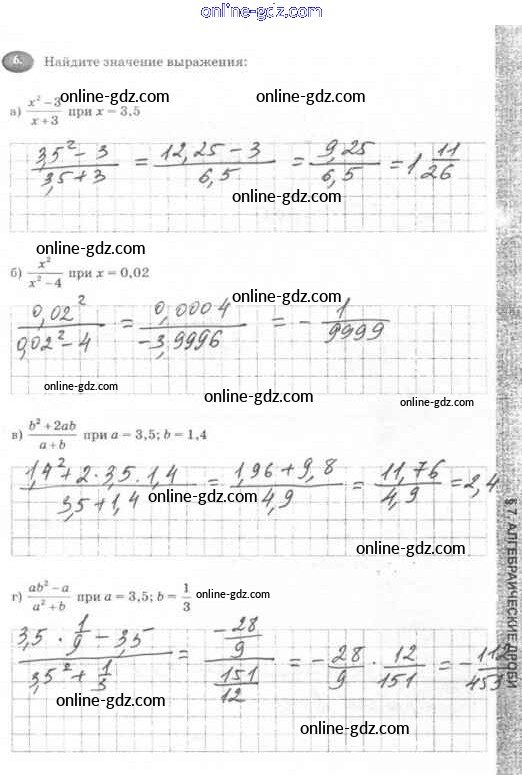 online-gdz.com
6. Найдите значение выражения:
online-gdz.com online-gdz.com
а) (x² − 3)/(x + 3) при x = 3,5
(3,5² − 3)/(3,5 + 3) = (12,25 − 3)/6,5 = 9,25/6,5 = 1 11/26
online-gdz.com
online-gdz.com
б) x²/(x² − 4) при x = 0,02
online-gdz.com
0,02²/(0,02² − 4) = 0,0004/−3,9996 = − 1/9999
online-gdz.com online-gdz.com online-gdz.com
в) (b² + 2ab)/(a + b) при a = 3,5; b = 1,4
online-gdz.com
(1,4² + 2 · 3,5 · 1,4)/(3,5 + 1,4) = (1,96 + 9,8)/4,9 = 11,76/4,9 = 2,4
online-gdz.com
online-gdz.com
г) (ab² − a)/(a² + b) при a = 3,5; b = 1/3 online-gdz.com
(3,5 · 1/9 − 3,5)/(3,5² + 1/3) = (−28/9)/(151/12) = − 28/9 · 12/151 = − 112/453
online-gdz.com
online-gdz.com
§ 7. АЛГЕБРАИЧЕСКИЕ ДРОБИ